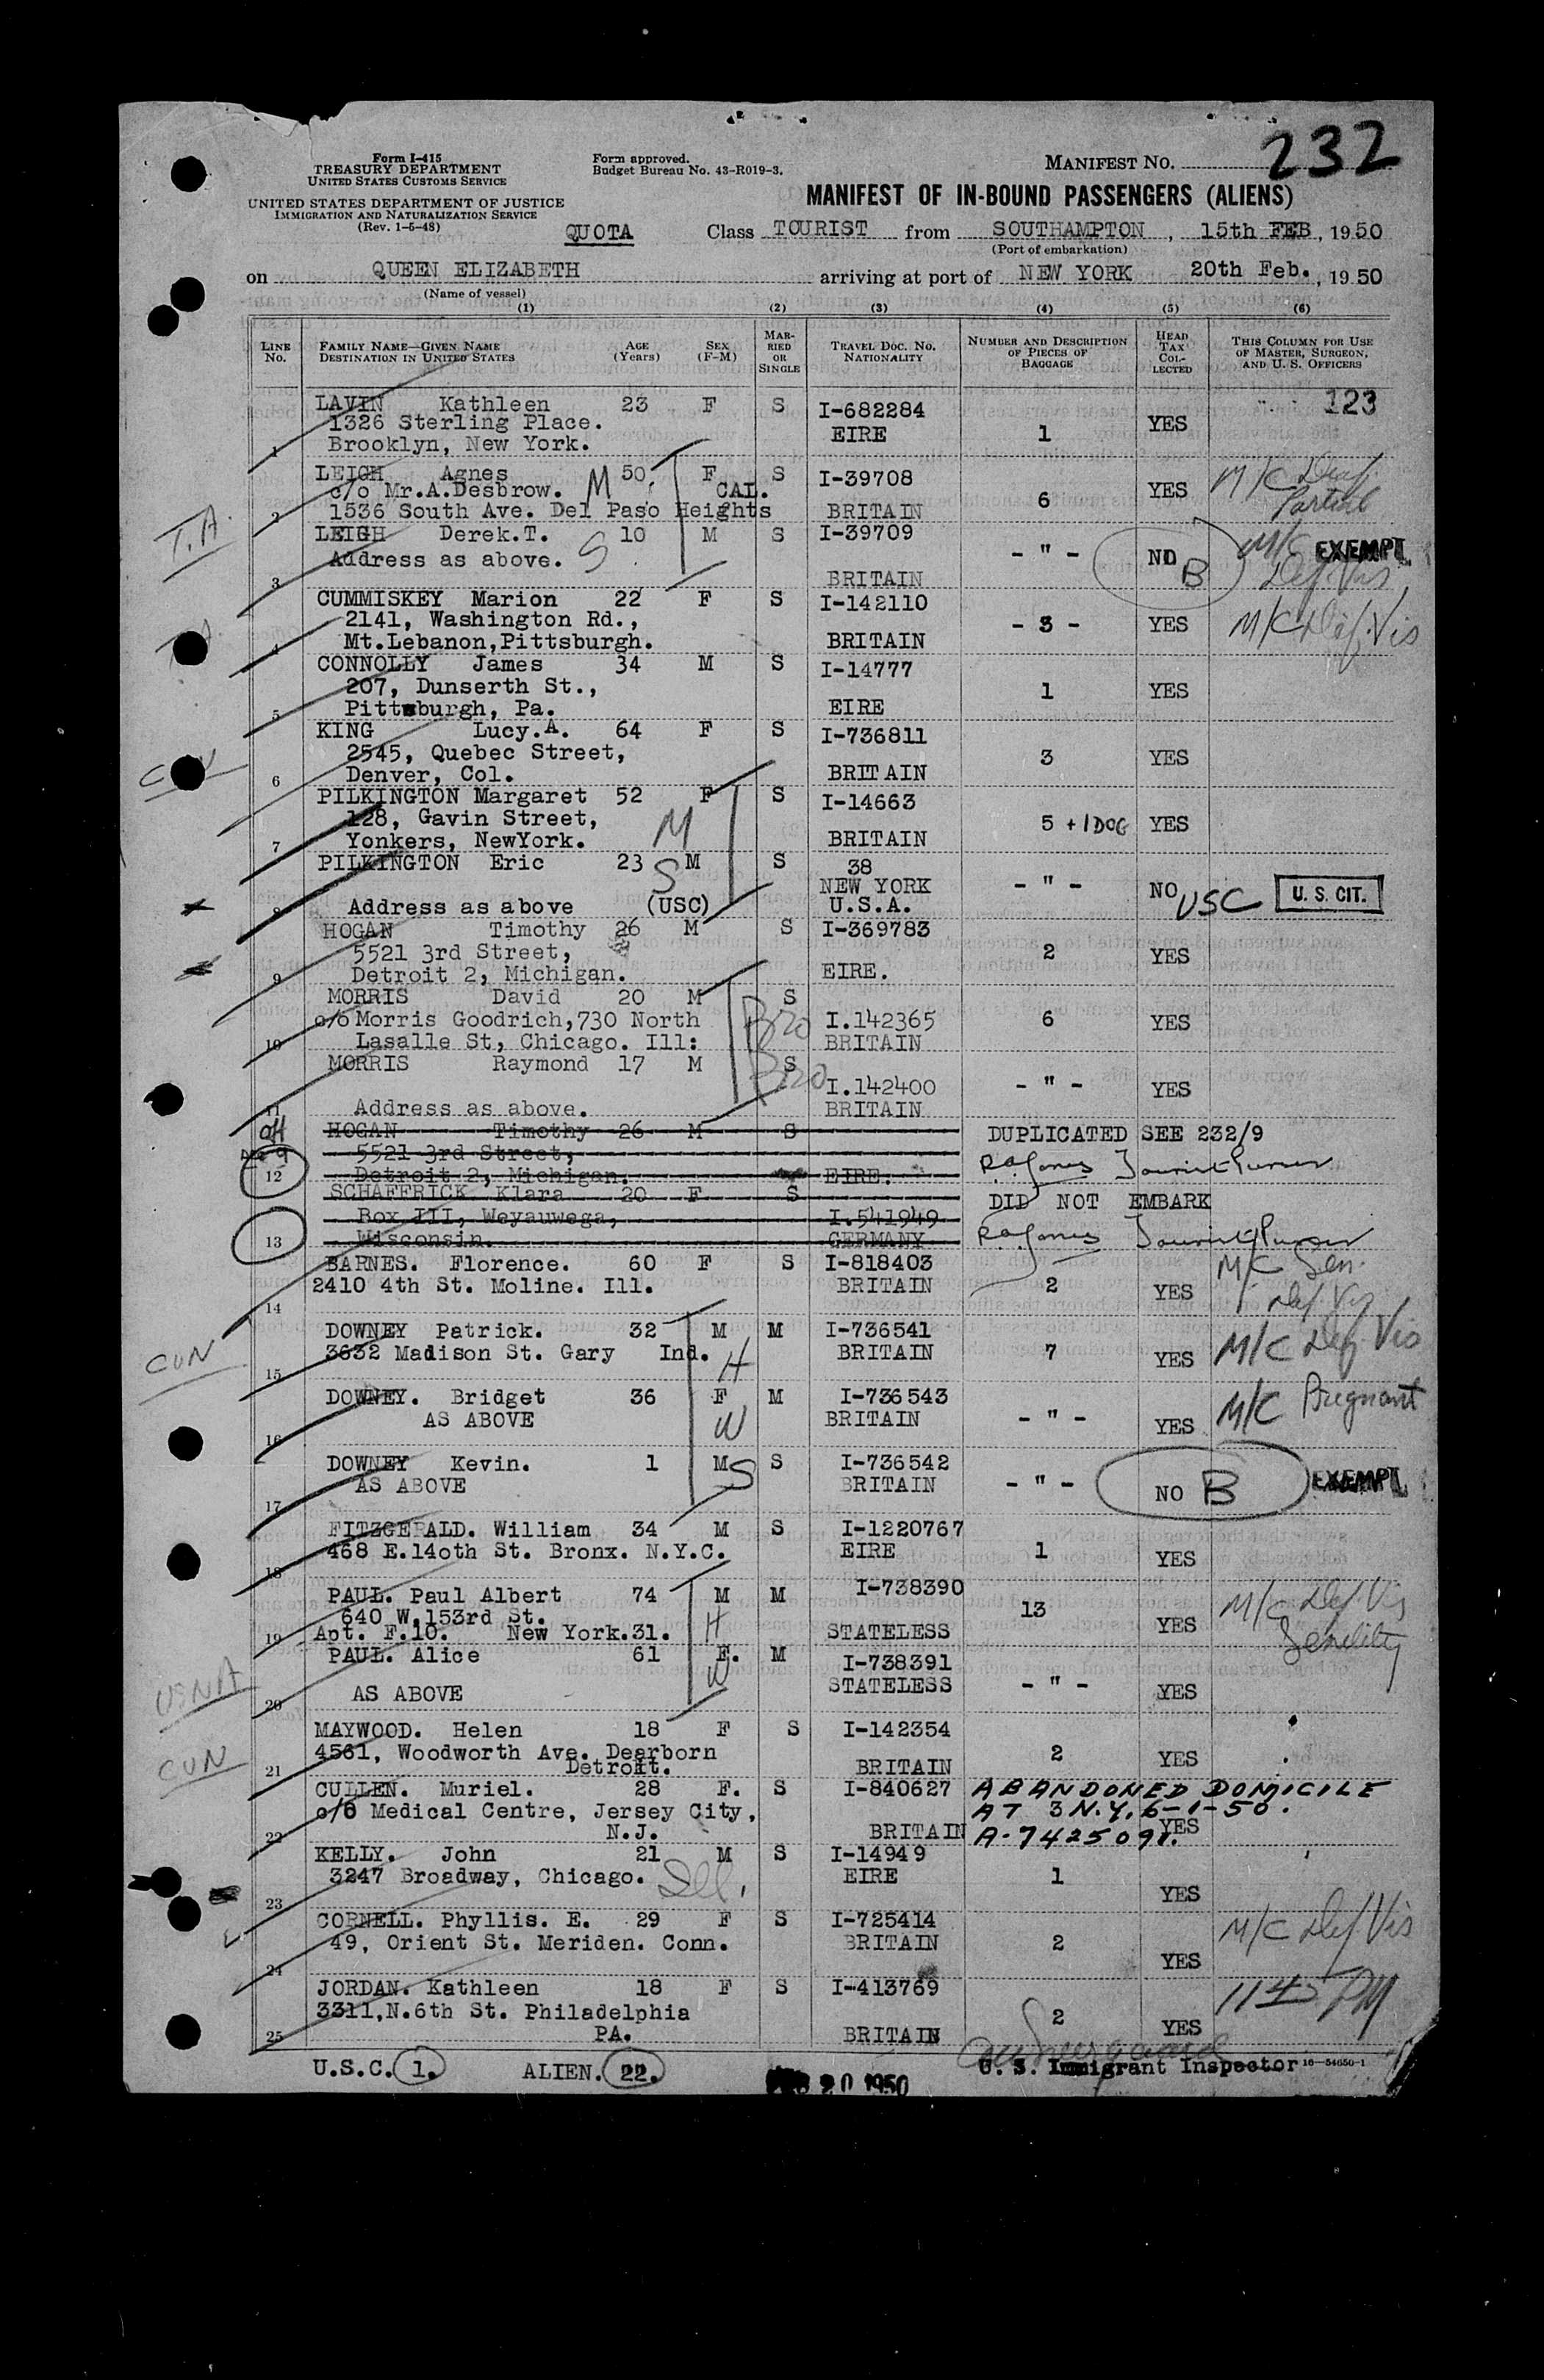 Form I-415
TREASURY DEPARTMENT
UNITED STATES CUSTOMS SERVICE
UNITED STATES DEPARTMENT OF JUSTICE
IMMIGRATION AND NATURALIZATION SERVICE
(Rev. 1-5-48)
Form approved.
Budget Bureau No. 43-R019-3.
MANIFEST NO. 232
MANIFEST OF IN-BOUND PASSENGERS (ALIENS)
QUOTA Class TOURIST from SOUTHAMPTON, 15th FEB, 1950
(Port of embarkation)
on QUEEN ELIZABETH arriving at port of NEW YORK 20th Feb., 1950
(Name of vessel)
(1) (2) (3) (4) (5) (6)
LINE No. FAMILY NAME—GIVEN NAME DESTINATION IN UNITED STATES AGE (Years) SEX (F-M) MARRIED OR SINGLE TRAVEL DOC. NO. NATIONALITY NUMBER AND DESCRIPTION OF PIECES OF BAGGAGE HEAD TAX COLLECTED THIS COLUMN FOR USE OF MASTER, SURGEON, AND U. S. OFFICERS
123
LAVIN Kathleen 23 F S I-682284
1326 Sterling Place. EIRE 1 YES
1 Brooklyn, New York.
LEIGH Agnes M 50. F S I-39708 M/C Deaf
c/o Mr.A.Desbrow. CAL. 6 YES Partial
2 1536 South Ave. Del Paso Heights BRITAIN
T.A.
LEIGH Derek.T. S 10 M S I-39709
Address as above. - " - NO B M/C Def. Vis EXEMPT
3 BRITAIN
CUMMISKEY Marion 22 F S I-142110
2141, Washington Rd., - 3 - YES M/C Def. Vis
4 Mt.Lebanon,Pittsburgh. BRITAIN
CONNOLLY James 34 M S I-14777
207, Dunserth St., 1 YES
5 Pittsburgh, Pa. EIRE
KING Lucy.A. 64 F S I-736811
2545, Quebec Street, 3 YES
6 Denver, Col. BRITAIN
PILKINGTON Margaret 52 F S I-14663
128, Gavin Street, M 5 +1 DOG YES
7 Yonkers, NewYork. BRITAIN
PILKINGTON Eric 23 S M S 38
NEW YORK - " - NO USC U. S. CIT.
8 Address as above (USC) U.S.A.
HOGAN Timothy 26 M S I-369783
5521 3rd Street, 2 YES
9 Detroit 2, Michigan. EIRE.
MORRIS David 20 M S
c/o Morris Goodrich,730 North Bro I.142365 6 YES
10 Lasalle St, Chicago. Ill: BRITAIN
MORRIS Raymond 17 M S
Bro I.142400 - " - YES
11 Address as above. BRITAIN
HOGAN Timothy 26 M S DUPLICATED SEE 232/9
5521 3rd Street, Tourist Purser
12 Detroit 2, Michigan. EIRE.
SCHAFFRICK Klara 20 F S DID NOT EMBARK
Box III, Weyauwega, I.541949
13 Wisconsin. GERMANY Tourist Purser
BARNES. Florence. 60 F S I-818403 M/C Sen.
2410 4th St. Moline. Ill. BRITAIN 2 YES Def Vis
14
DOWNEY Patrick. 32 M M I-736541
3632 Madison St. Gary Ind. H BRITAIN 7 YES M/C Def Vis
15
CUN
DOWNEY. Bridget 36 F M I-736543
AS ABOVE W BRITAIN - " - YES M/C Pregnant
16
DOWNEY Kevin. 1 M S S I-736542
AS ABOVE BRITAIN - " - NO B EXEMPT
17
FITZGERALD. William 34 M S I-1220767
468 E.14oth St. Bronx. N.Y.C. EIRE 1 YES
18
PAUL. Paul Albert 74 M M I-738390
640 W.153rd St. 13 M/C Def Vis
19 Apt. F.10. New York.31. H STATELESS YES Senility
PAUL. Alice 61 F. M I-738391
20 AS ABOVE W STATELESS - " - YES
USNA
MAYWOOD. Helen 18 F S I-142354
4561, Woodworth Ave. Dearborn 2 YES
21 Detroit. BRITAIN
CUN
CULLEN. Muriel. 28 F. S I-840627 ABANDONED DOMICILE
c/o Medical Centre, Jersey City, AT 3 N.Y. 6-1-50.
22 N.J. BRITAIN A-7425091. YES
KELLY. John 21 M S I-14949
3247 Broadway, Chicago. Ill. EIRE 1
23 YES
CORNELL. Phyllis. E. 29 F S I-725414
49, Orient St. Meriden. Conn. BRITAIN 2 M/C Def Vis
24 YES
JORDAN. Kathleen 18 F S I-413769 1145 PM
3311,N.6th St. Philadelphia 2
25 PA. BRITAIN YES
U.S.C. 1. ALIEN. 22. U. S. Immigrant Inspector 16—54650-1
20 1950